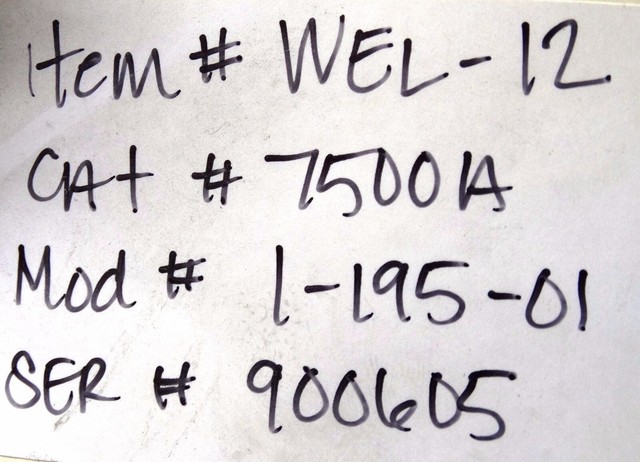 Item # WEL-12
CAt # 7500IA
Mod # 1-195-01
SER # 900605